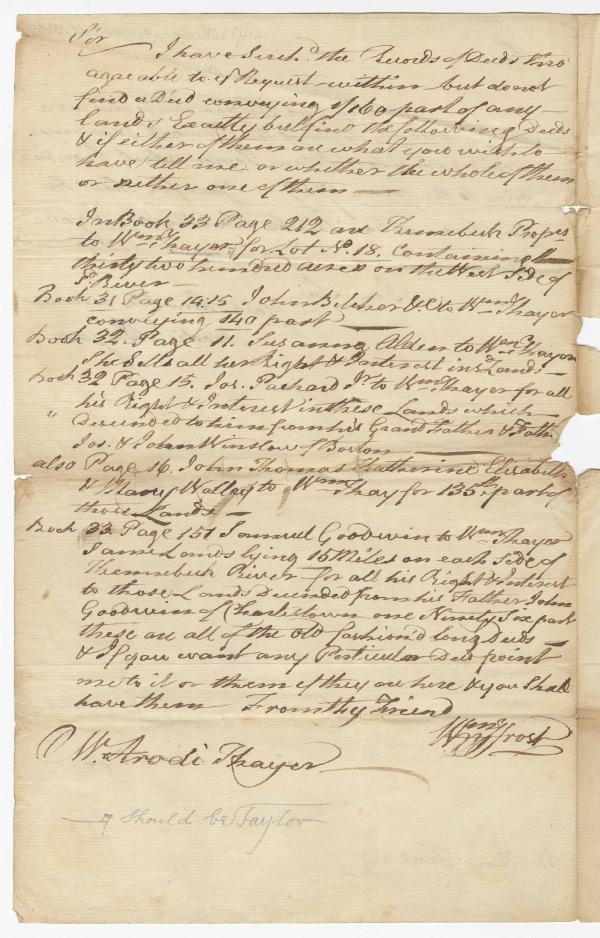 Sir
I have Serch.d the Records of Deeds thro
agreable to yr Request within but do not
find a Deed conveying 160 part of any
lands Exactly but find the following Deeds
& if either of them are what you wish to
have tell me or whether the whole of them
or nither one of them —
In Book 33 Page 212 are Kennebeck Propes
to Wm Thayer for Lot No. 18. Containing
thirty two hundred acres on the West Side of
sd River —
Book 31 Page 14:15 John Belcher &C to Wm Thayer
conveying 140 part —
Book 32. Page 11. Susanna Alden to Wm Thayer
She Sells all her Right & Interest in sd Lands —
Book 32 Page 15. Jos. Packard Jr. to Wm Thayer for all
his Right & Interest in these Lands which
" Descended to him from his Grand Father & Fath
Jos. & John Winslow of Boston
also Page 16. John Thomas Catherine Elizabeth
& Mary Walley to Wm Thay for 135th part of
those Lands —
Book 33. Page 151 Samuel Goodwin to Wm Thayer
Same Lands lying 15 Miles on each Side of
Kennebeck River for all his Right & Interest
to those Lands Decended from his Father John
Goodwin of Charlestown one Ninety Six part
these are all of the old fashion'd long Deeds —
& If you want any Perticular Deed point
me to it or them if they are here & you Shall
have them From thy Friend
Wm Frost
Wr. Arodi Thayer
Should be Taylor